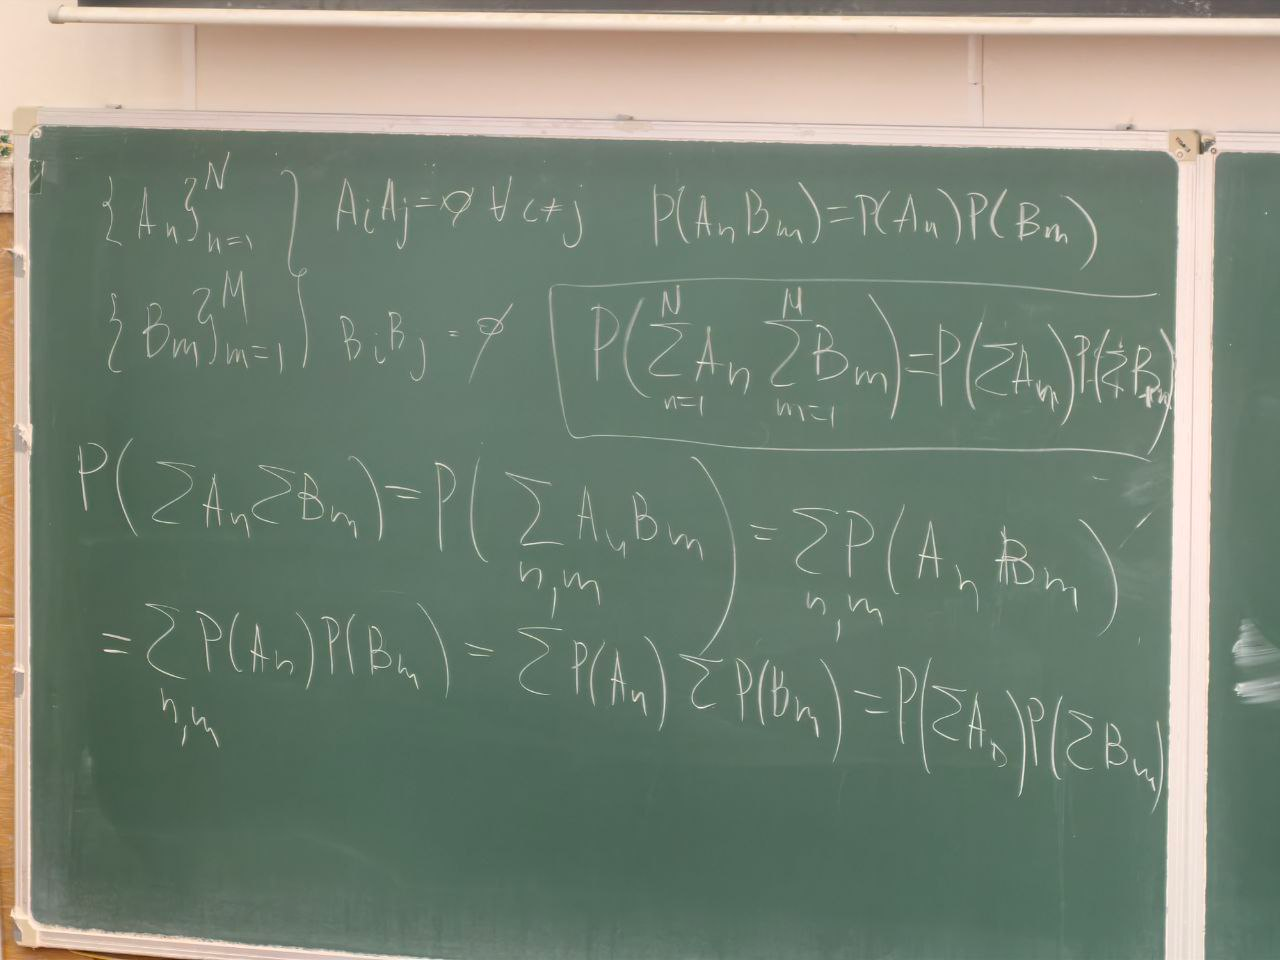 {A_n}_{n=1}^N } A_i A_j = ∅ ∀ i ≠ j P(A_n B_m) = P(A_n) P(B_m)
{B_m}_{m=1}^M } B_i B_j = ∅
P(∑_{n=1}^N A_n ∑_{m=1}^M B_m) = P(∑ A_n) P(∑ B_m)
P(∑ A_n ∑ B_m) = P(∑_{n,m} A_n B_m) = ∑_{n,m} P(A_n B_m)
= ∑_{n,m} P(A_n) P(B_m) = ∑ P(A_n) ∑ P(B_m) = P(∑ A_n) P(∑ B_m)